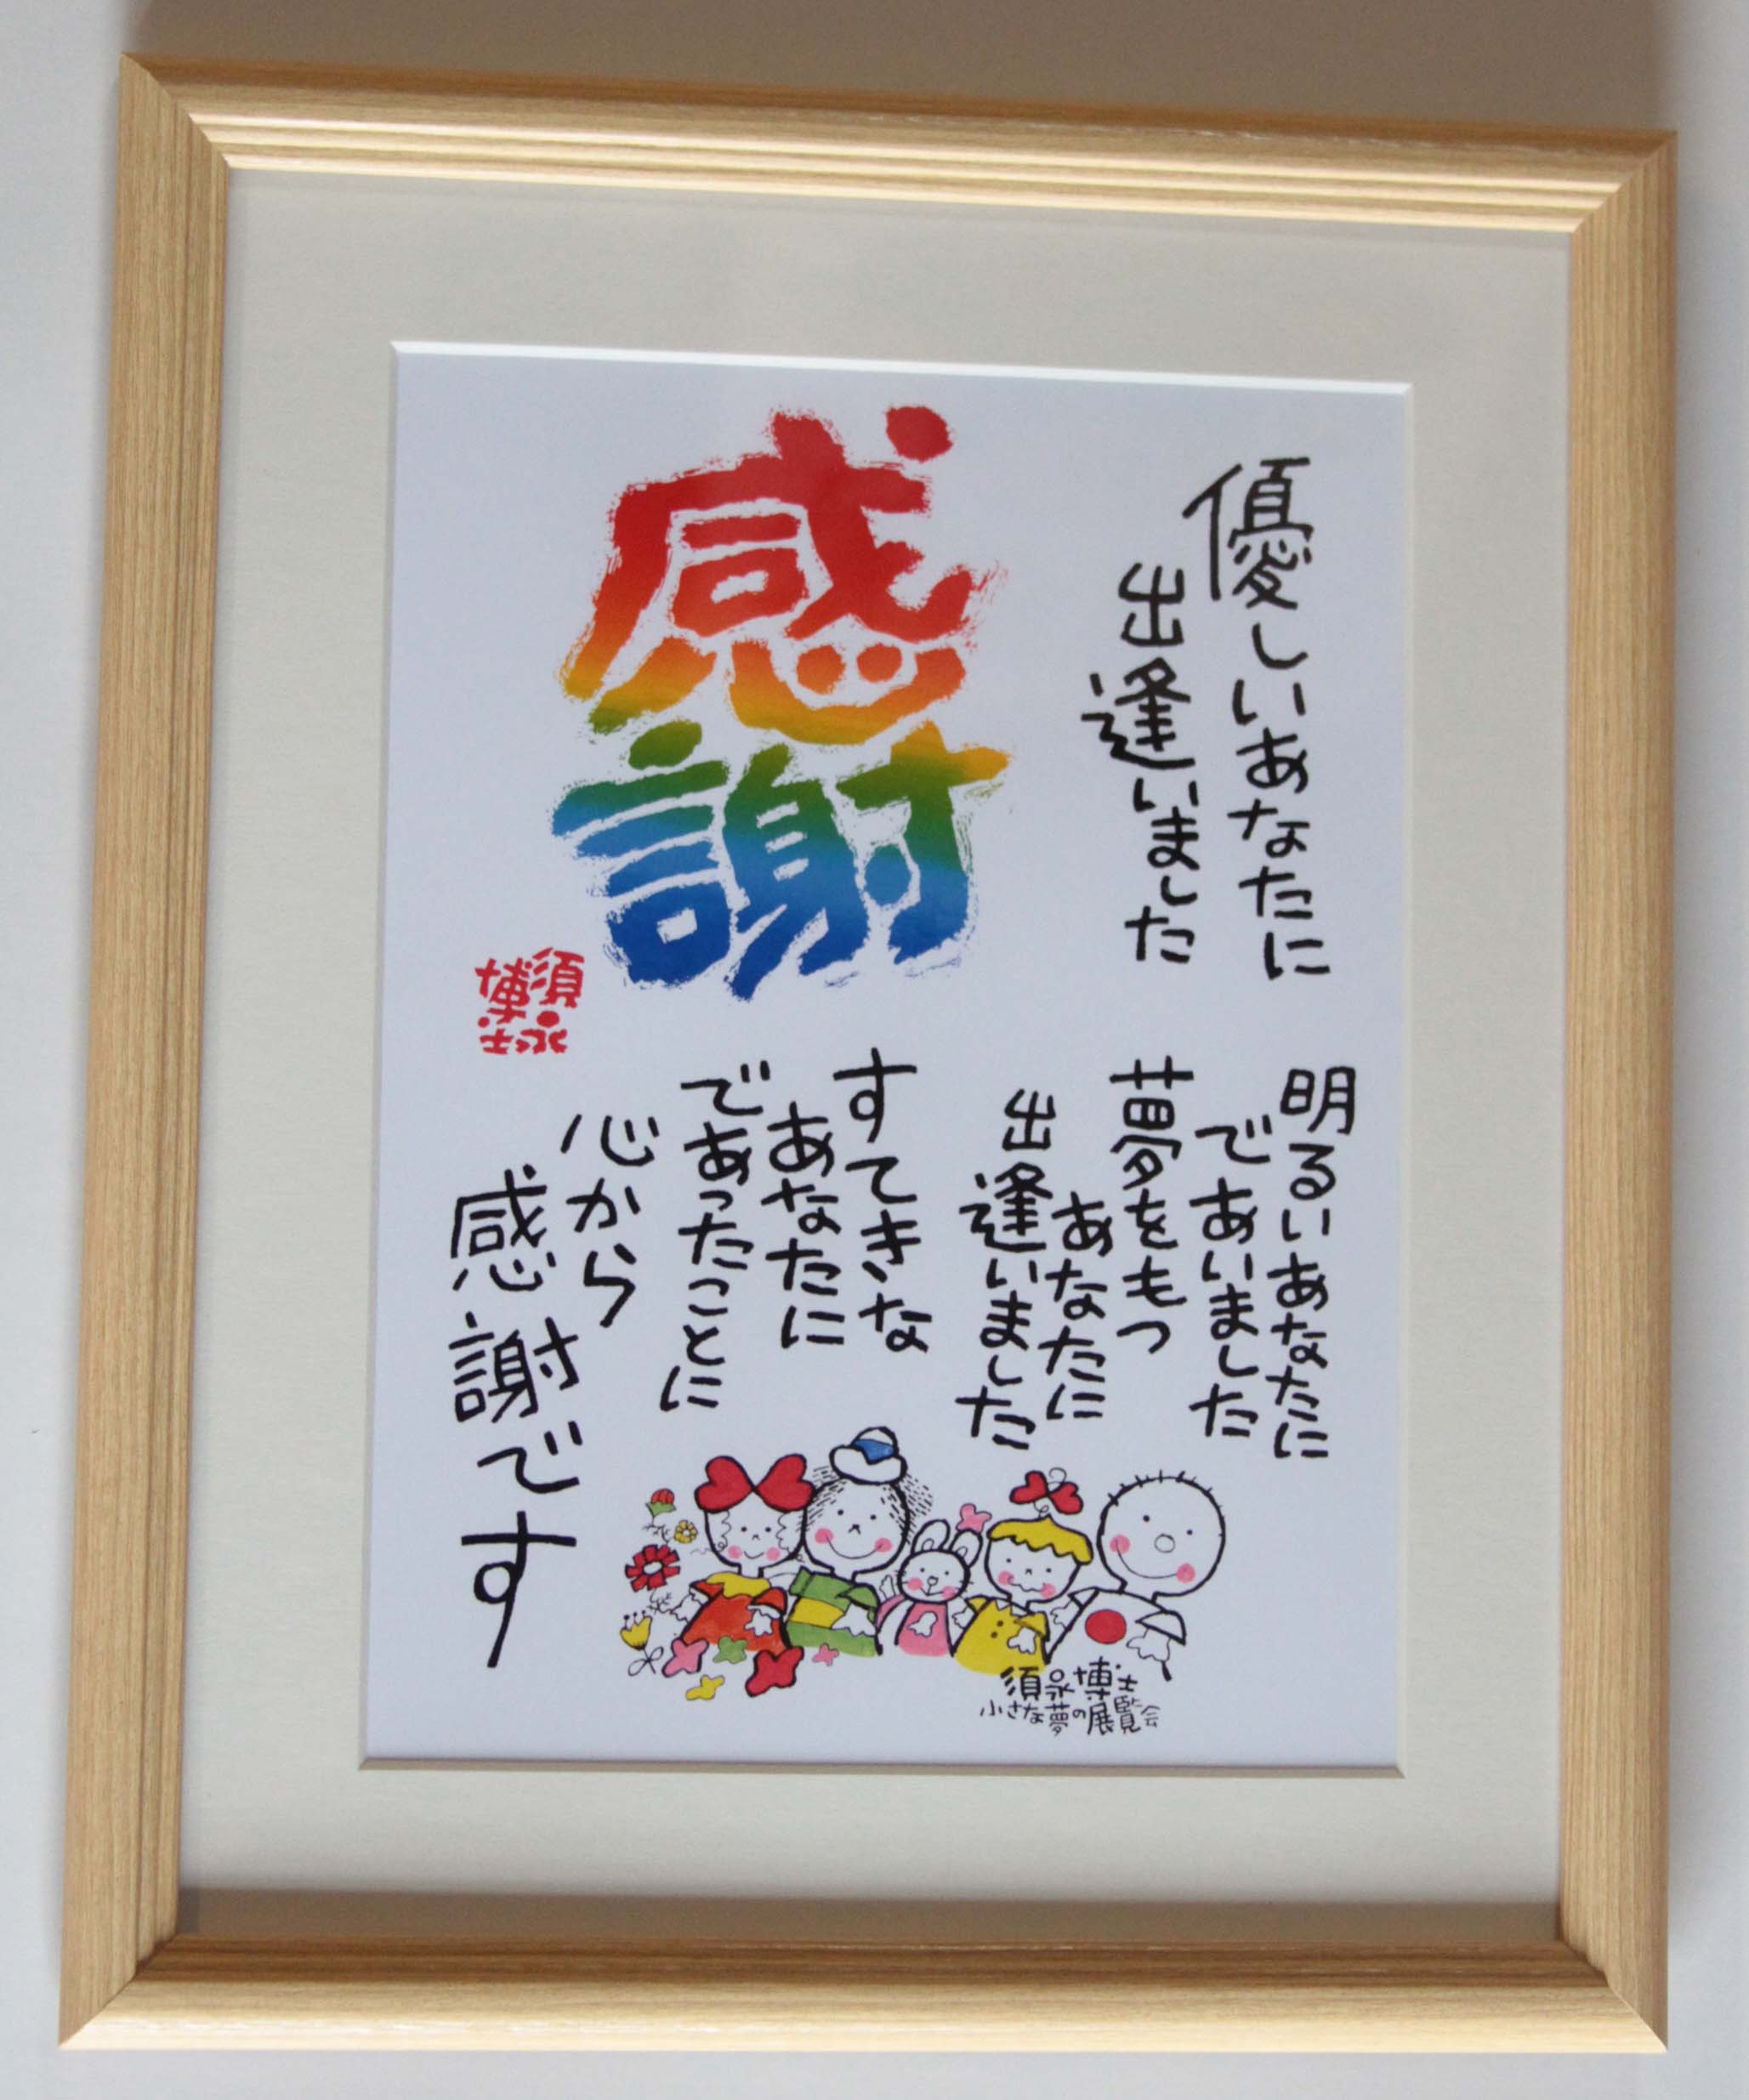 優しいあなたに
出逢いました
感謝
須永
博士
明るいあなたに
であいました
夢をもつ
あなたに
出逢いました
すてきな
あなたに
であったことに
心から
感謝です
須永博士
小さな夢の展覧会